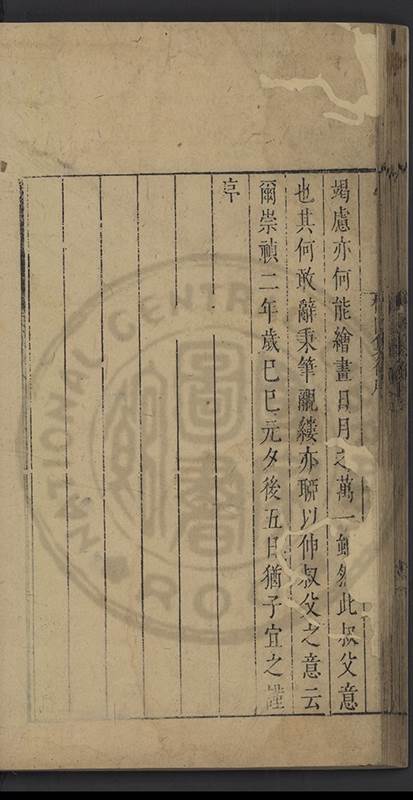 竭慮亦何能繪畫日月之萬一雖然此叔父意
也其何敢辭秉筆覼縷亦聊以伸叔父之意云
爾崇禎二年歲己巳元夕後五日猶子宜之謹
序